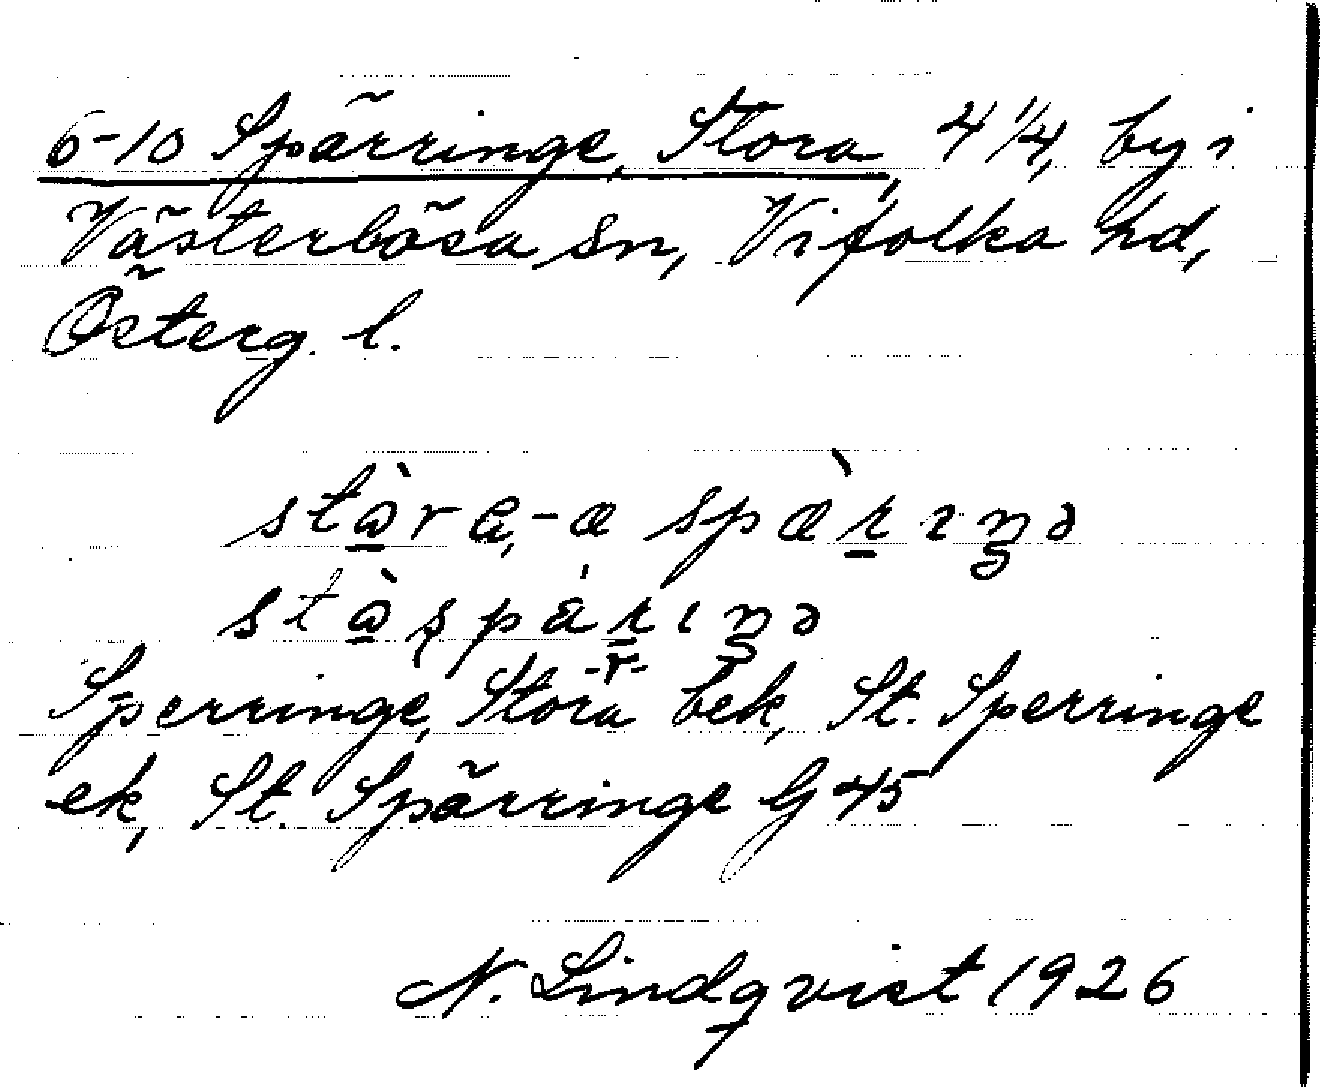 6-10 Spärringe, Stora, 4 1/4, by i
Västerlösa sn, Vifolka hd,
Österg. l.
stàra, -a spær̲ıŋə
stàspár̲ıŋə
-r-
Sperringe, Stora bek, St. Sperringe
ek, St. Spärringe G 45
N. Lindqvist 1926